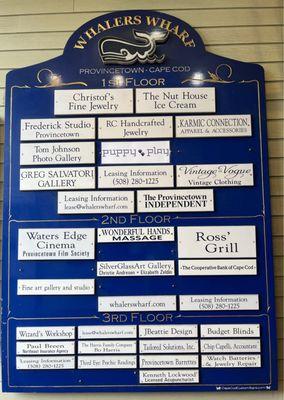 WHALERS WHARF
PROVINCETOWN · CAPE COD
1ST FLOOR
Christof's
Fine Jewelry
The Nut House
Ice Cream
Frederick Studio
Provincetown
RC Handcrafted
Jewelry
KARMIC CONNECTION
APPAREL & ACCESSORIES
Tom Johnson
Photo Gallery
puppy play
GREG SALVATORI
GALLERY
Leasing Information
(508) 280-1225
Vintage in Vogue
Vintage Clothing
Leasing Information
lease@whalerswharf.com
The Provincetown
INDEPENDENT
2ND FLOOR
Waters Edge
Cinema
Provincetown Film Society
WONDERFUL HANDS
MASSAGE
Ross'
Grill
SilverGlassArt Gallery
Christie Andresen - Elizabeth Zoldis
The Cooperative Bank of Cape Cod
Fine art gallery and studio
whalerswharf.com
Leasing Information
(508) 280-1225
3RD FLOOR
Wizard's Workshop
lease@whalerswharf.com
JBeattie Design
Budget Blinds
Paul Breen
Northeast Insurance Agency
The Harris Family Company
Bo Harris
Tailored Solutions, Inc.
Chip Capelli, Accountant
Leasing Information
(508) 280-1225
Third Eye Psychic Readings
Provincetown Barrettes
Watch Batteries
& Jewelry Repair
Kenneth Lockwood
Licensed Acupuncturist